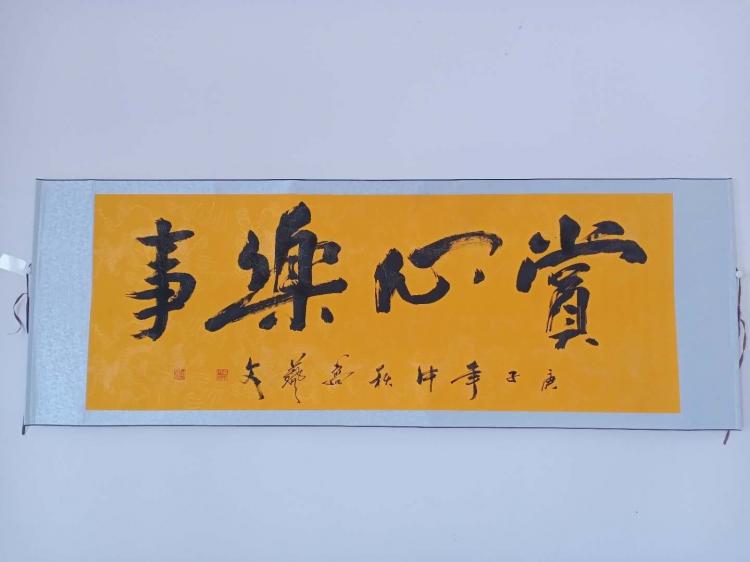 賞心樂事
庚子年仲秋 藝文